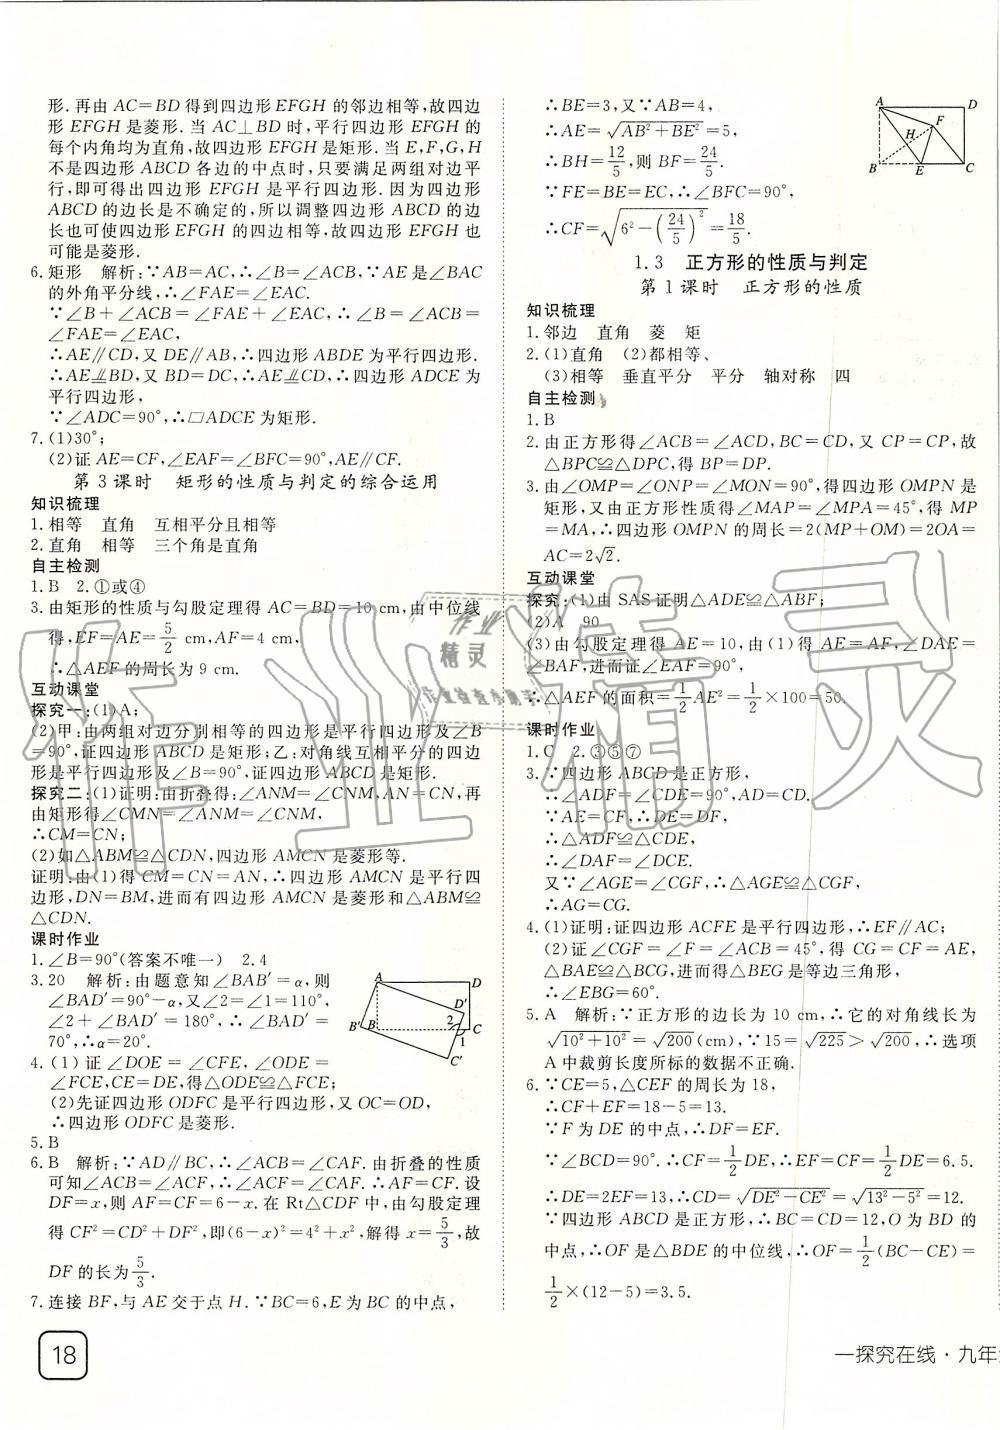 形. 再由 AC=BD 得到四边形 EFGH 的邻边相等,故四边
形 EFGH 是菱形. 当 AC⊥BD 时,平行四边形 EFGH 的
每个内角均为直角,故四边形 EFGH 是矩形. 当 E,F,G,H
不是四边形 ABCD 各边的中点时,只要满足两组对边平
行,即可得出四边形 EFGH 是平行四边形. 因为四边形
ABCD 的边长是不确定的,所以调整四边形 ABCD 的边
长也可使四边形 EFGH 的四边相等,故四边形 EFGH 也
可能是菱形.
6. 矩形 解析:∵AB=AC,∴∠B=∠ACB,∵AE是∠BAC
的外角平分线,∴∠FAE=∠EAC.
∵∠B+∠ACB=∠FAE+∠EAC,∴∠B=∠ACB=
∠FAE=∠EAC,
∴AE∥CD,又 DE∥AB,∴四边形 ABDE 为平行四边形.
∴AE⊥∥BD,又∵BD=DC,∴AE⊥∥CD,∴四边形 ADCE 为
平行四边形,
∵∠ADC=90°,∴□ADCE 为矩形.
7. (1)30°;
(2)证 AE=CF,∠EAF=∠BFC=90°,∴AE∥CF.
第 3 课时 矩形的性质与判定的综合运用
知识梳理
1. 相等 直角 互相平分且相等
2. 直角 相等 三个角是直角
自主检测
1. B 2. ①或④
3. 由矩形的性质与勾股定理得 AC=BD=10 cm,由中位线
得,EF=AE=5/2 cm,AF=4 cm,
∴△AEF 的周长为 9 cm.
互动课堂
探究一:(1)A;
(2)甲:由两组对边分别相等的四边形是平行四边形及∠B
=90°,证四边形 ABCD 是矩形;乙:对角线互相平分的四边
形是平行四边形及∠B=90°,证四边形 ABCD 是矩形.
探究二:(1)证明:由折叠得:∠ANM=∠CNM,AN=CN,再
由矩形得∠CMN=∠ANM=∠CNM,
∴CM=CN;
(2)如△ABM≌△CDN,四边形 AMCN 是菱形等.
证明:由(1)得CM=CN=AN,∴四边形 AMCN 是平行四
边形,DN=BM,进而有四边形 AMCN 是菱形和△ABM≌
△CDN.
课时作业
1. ∠B=90°(答案不唯一) 2. 4
3. 20 解析:由题意知∠BAB′=α,则
∠BAD′=90°-α,又∠2=∠1=110°,
∠2+∠BAD′=180°,∴∠BAD′=
70°,∴α=20°.
4. (1)证∠DOE=∠CFE,∠ODE=
∠FCE,CE=DE,得△ODE≌△FCE;
(2)先证四边形 ODFC 是平行四边形,又 OC=OD,
∴四边形 ODFC 是菱形.
5. B
6. B 解析:∵AD∥BC,∴∠ACB=∠CAF. 由折叠的性质
可知∠ACB=∠ACF,∴∠ACF=∠CAF. ∴AF=CF. 设
DF=x,则 AF=CF=6-x. 在 Rt△CDF 中,由勾股定理
得 CF²=CD²+DF²,即(6-x)²=4²+x²,解得 x=5/3,故
DF 的长为5/3.
7. 连接 BF,与 AE 交于点 H. ∵BC=6,E 为 BC 的中点,
A D D′ B′ B 2 C 1 C′
18
∴BE=3,又∵AB=4,
∴AE=√(AB²+BE²)=5,
∴BH=12/5,则 BF=24/5.
∵FE=BE=EC,∴∠BFC=90°,
∴CF=√(6²-(24/5)²)=18/5.
A D F H B E C
1.3 正方形的性质与判定
第 1 课时 正方形的性质
知识梳理
1. 邻边 直角 菱 矩
2. (1)直角 (2)都相等、
(3)相等 垂直平分 平分 轴对称 四
自主检测
1. B
2. 由正方形得∠ACB=∠ACD,BC=CD,又 CP=CP,故
△BPC≌△DPC,得 BP=DP.
3. 由∠OMP=∠ONP=∠MON=90°,得四边形 OMPN 是
矩形,又由正方形性质得∠MAP=∠MPA=45°,得 MP
=MA,∴四边形 OMPN 的周长=2(MP+OM)=2OA=
AC=2√2.
互动课堂
探究:(1)由 SAS 证明△ADE≌△ABF;
(2)A 90
(3)由勾股定理得 AE=10,由(1)得 AE=AF,∠DAE=
∠BAF,进而证∠EAF=90°,
∴△AEF 的面积=1/2AE²=1/2×100=50.
课时作业
1. C 2. ③⑤⑦
3. ∵四边形 ABCD 是正方形,
∴∠ADF=∠CDE=90°,AD=CD.
∵AE=CF,∴DE=DF,
∴△ADF≌△CDE,
∴∠DAF=∠DCE.
又∵∠AGE=∠CGF,∴△AGE≌△CGF,
∴AG=CG.
4. (1)证明:证四边形 ACFE 是平行四边形,∴EF∥AC;
(2)证∠CGF=∠F=∠ACB=45°,得 CG=CF=AE,
△BAE≌△BCG,进而得△BEG 是等边三角形,
∴∠EBG=60°.
5. A 解析:∵正方形的边长为 10 cm,∴它的对角线长为
√(10²+10²)=√200(cm),∵15=√225>√200,∴选项
A 中裁剪长度所标的数据不正确.
6. ∵CE=5,△CEF 的周长为 18,
∴CF+EF=18-5=13.
∵F 为 DE 的中点,∴DF=EF.
∵∠BCD=90°,∴CF=1/2DE,∴EF=CF=1/2DE=6.5.
∴DE=2EF=13,∴CD=√(DE²-CE²)=√(13²-5²)=12.
∵四边形 ABCD 是正方形,∴BC=CD=12,O 为 BD 的
中点,∴OF 是△BDE 的中位线,∴OF=1/2(BC-CE)=
1/2×(12-5)=3.5.
一探究在线·九年
作业精灵
作业
精灵